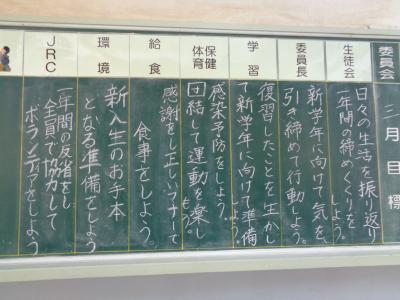 委員会
三月目標
生徒会
日々の生活を振り返り
一年間の締めくくりを
しよう。
委員長
新学年に向けて気を
引き締めて行動しよう。
学習
復習したことを生かし
て新学年に向けて準備
しよう。
保健
体育
感染予防をしよう。
団結して運動を楽し
もう。
給食
感謝をし正しいマナーで
食事をしよう。
環境
新入生のお手本
となる準備をしよう
JRC
一年間の反省をし
全員で協力して
ボランティアをしよう。